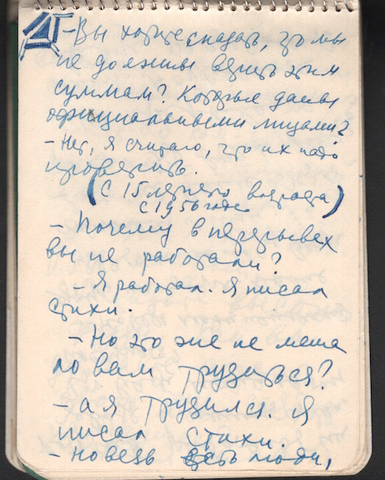 – Вы хотите сказать, что мы
не должны верить этим
суммам? Которые даны
официальными лицами?
– Нет, я считаю, что их надо
проверить.
(С 15 летнего возраста)
с 1956 года
– Почему в перерывах
вы не работали?
– Я работал. Я писал
стихи.
– Но это же не меша
ло вам трудиться?
– а я трудился. Я
писал стихи.
– Но ведь есть люди,